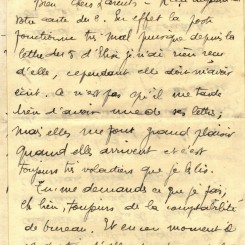 Bien chers Parents - Rien
votre carte du 8. En effet la poste
fonctionne très mal puisque depuis la
lettre du 5 d'Elise je n'ai rien reçu
d'elle, cependant elle doit m'avoir
écrit. Ce n'est pas qu'il me tarde
bien d'avoir une de ses lettres,
mais elles me font grand plaisir
quand elles arrivent et c'est
toujours très volontiers que je lis.
Tu me demandes ce que je fais,
eh bien, toujours de la comptabilité
de bureau. Et en ce moment